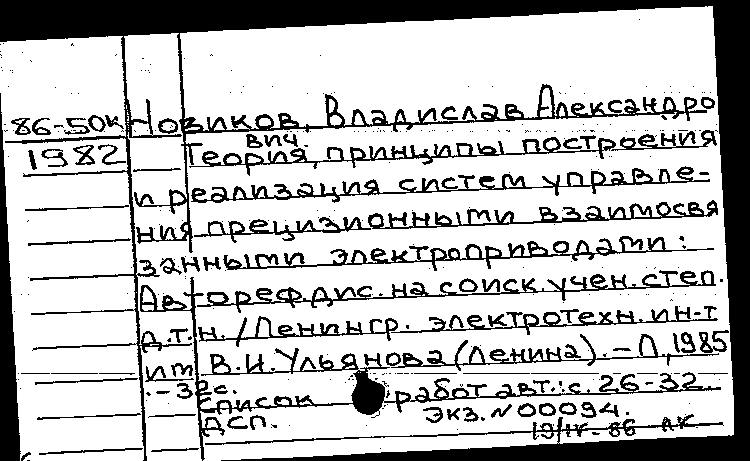 86-50к Новиков, Владислав Александро
вич.
1982 Теория, принципы построения
и реализация систем управле-
ния прецизионными взаимосвя
занными электроприводами:
Автореф.дис.на соиск.учен.степ.
д.т.н./Ленингр. электротехн.ин-т
им В.И.Ульянова(Ленина).-Л,1985
.-32с.
Список работ авт.:с.26-32.
ДСП. Экз.N00094.
19/IV-86 АК